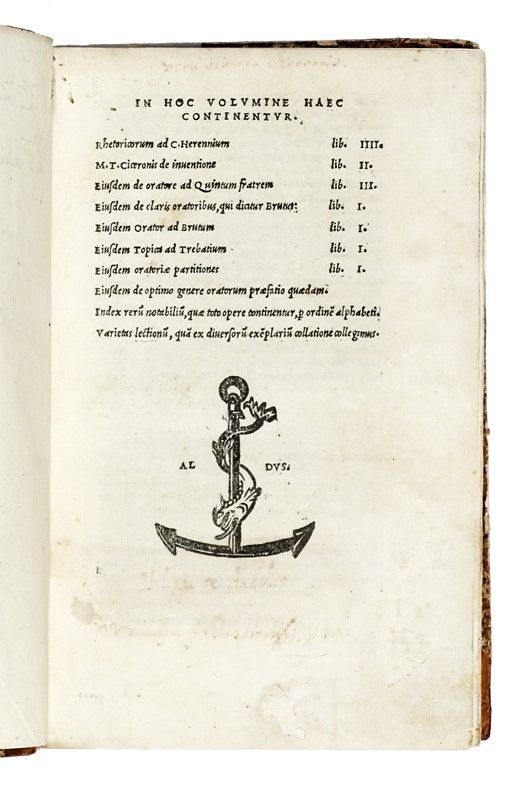 IN HOC VOLVMINE HAEC
CONTINENTVR.
Rhetoricorum ad C. Herennium lib. IIII.
M. T. Ciceronis de inuentione lib. II.
Eiuſdem de oratore ad Quintum fratrem lib. III.
Eiuſdem de claris oratoribus, qui dicitur Brutus: lib. I.
Eiuſdem Orator ad Brutum lib. I.
Eiuſdem Topica ad Trebatium lib. I.
Eiuſdem oratoriæ partitiones lib. I.
Eiuſdem de optimo genere oratorum præfatio quædam.
Index rerū notabiliū, quæ toto opere continentur, p ordinē alphabeti.
Varietas lectionū, quā ex diuerſorū exēplariū collatione collegimus.
AL DVS.